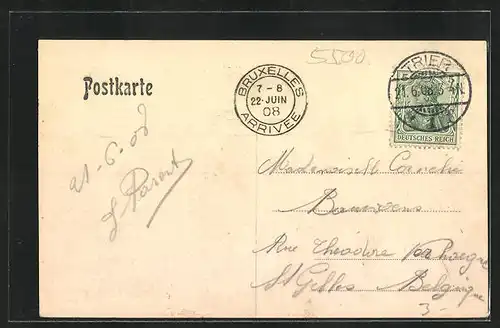 5500
Postkarte
BRUXELLES
7 - 8
22 JUIN
08
ARRIVEE
TRIER
21.6.08
DEUTSCHES REICH
21-6-08
Parent
Mademoiselle Cornélie
Rue Théodore
St Gilles Belgique
3-